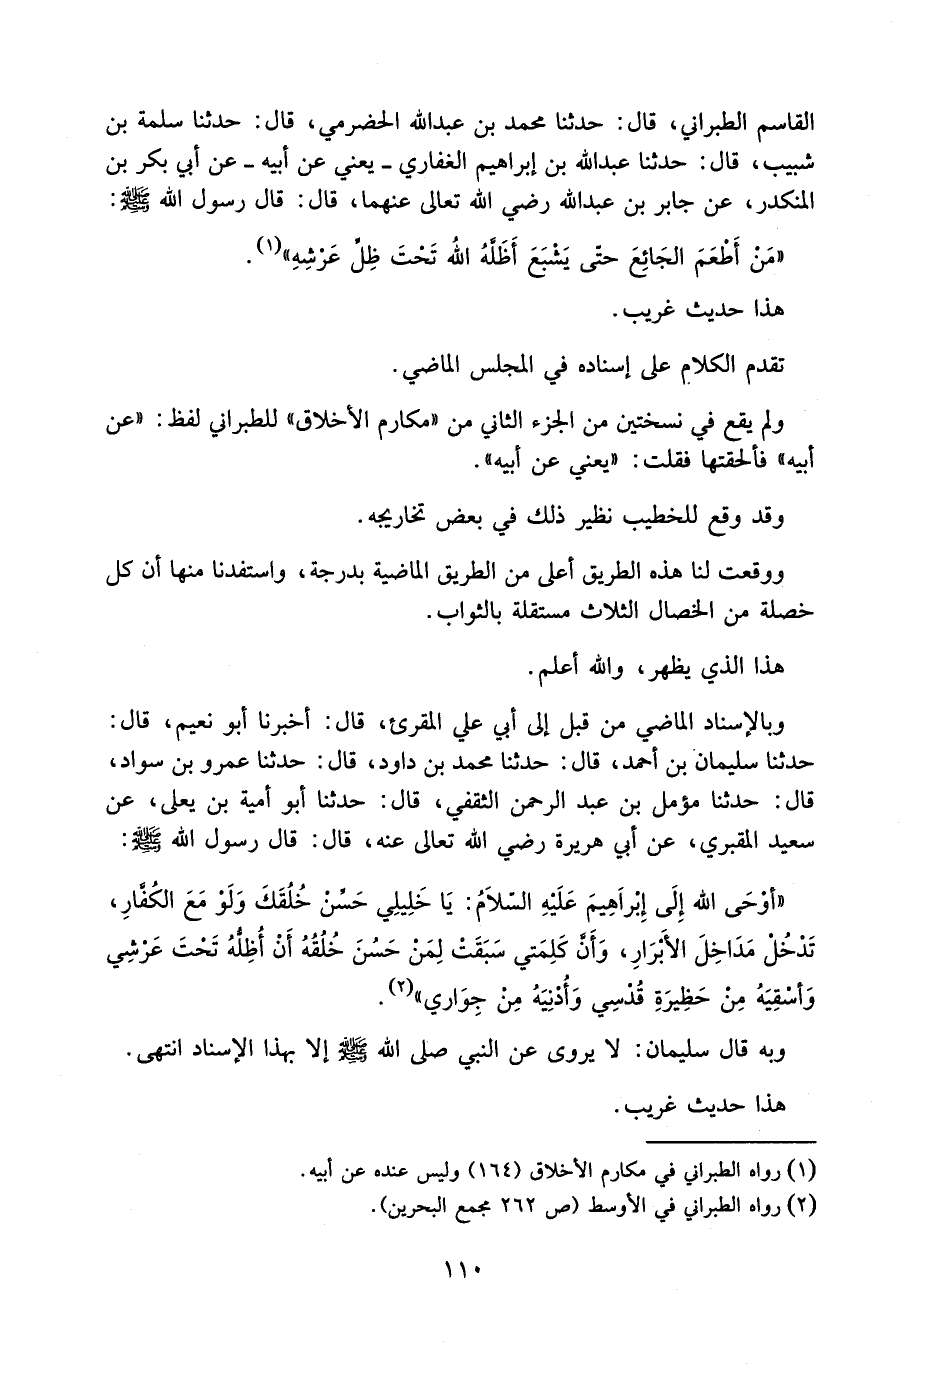 القاسم الطبراني، قال: حدثنا محمد بن عبدالله الحضرمي، قال: حدثنا سلمة بن
شبيب، قال: حدثنا عبدالله بن إبراهيم الغفاري ـ يعني عن أبيه ـ عن أبي بكر بن
المنكدر، عن جابر بن عبدالله رضي الله تعالى عنهما، قال: قال رسول الله ﷺ:
«مَنْ أَطْعَمَ الجَائِعَ حتّى يَشْبَعَ أَظَلَّهُ اللهُ تَحْتَ ظِلِّ عَرْشِهِ»(١).
هذا حديث غريب.
تقدم الكلام على إسناده في المجلس الماضي.
ولم يقع في نسختين من الجزء الثاني من «مكارم الأخلاق» للطبراني لفظ: «عن
أبيه» فألحقتها فقلت: «يعني عن أبيه».
وقد وقع للخطيب نظير ذلك في بعض تخاريجه.
ووقعت لنا هذه الطريق أعلى من الطريق الماضية بدرجة، واستفدنا منها أن كل
خصلة من الخصال الثلاث مستقلة بالثواب.
هذا الذي يظهر، والله أعلم.
وبالإسناد الماضي من قبل إلى أبي علي المقرئ، قال: أخبرنا أبو نعيم، قال:
حدثنا سليمان بن أحمد، قال: حدثنا محمد بن داود، قال: حدثنا عمرو بن سواد،
قال: حدثنا مؤمل بن عبد الرحمن الثقفي، قال: حدثنا أبو أمية بن يعلى، عن
سعيد المقبري، عن أبي هريرة رضي الله تعالى عنه، قال: قال رسول الله ﷺ:
«أوْحَى الله إِلَى إِبْراَهِيمَ عَلَيْهِ السّلاَمُ: يَا خَلِيلِي حَسِّنْ خُلُقَكَ وَلَوْ مَعَ الكُفَّارِ،
تَدْخُلْ مَدَاخِلَ الأَبْرَارِ، وَأَنَّ كَلِمَتي سَبَقَتْ لِمَنْ حَسُنَ خُلُقُهُ أَنْ أُظِلُّهُ تَحْتَ عَرْشِي
وَأسْقِيَهُ مِنْ حَظِيرَةِ قُدْسِي وَأُدْنِيَهُ مِنْ جِوَارِي»(٢).
وبه قال سليمان: لا يروى عن النبي صلى الله ﷺ إلا بهذا الإسناد انتهى.
هذا حديث غريب.
(١) رواه الطبراني في مكارم الأخلاق (١٦٤) وليس عنده عن أبيه.
(٢) رواه الطبراني في الأوسط (ص ٢٦٢ مجمع البحرين).
١١٠